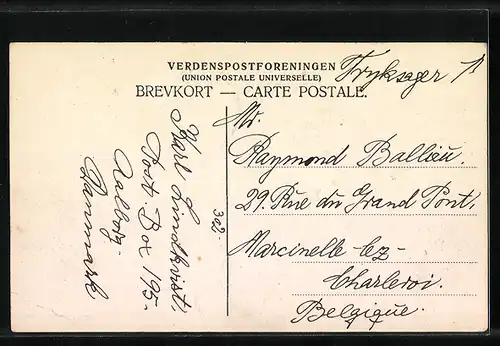 VERDENSPOSTFORENINGEN
(UNION POSTALE UNIVERSELLE)
BREVKORT — CARTE POSTALE.
Tryksager
Karl Lindkvist,
Post. Box 195-
Aalborg-
Danmark
302-
Mr.
Raymond Ballieu.
29. Rue du Grand Pont,
Marcinelle lez-
Charleroi.
Belgique.